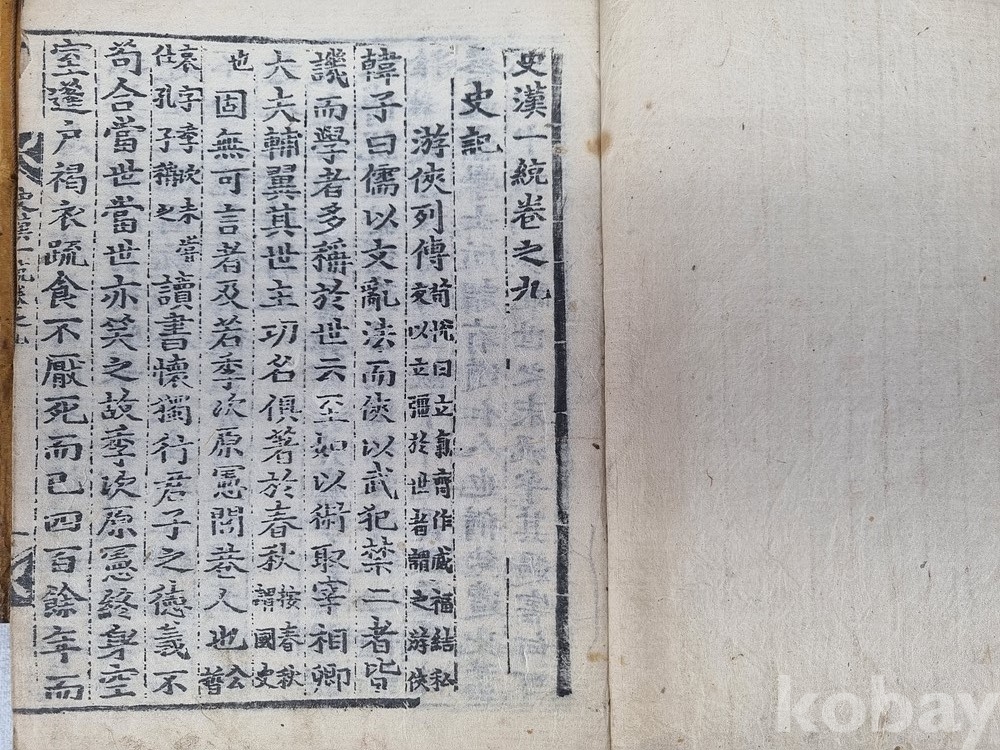 史漢一統卷之九
史記
游俠列傳 荀悅曰立氣齊作威福結私
交以立彊於世者謂之游俠
韓子曰儒以文亂法而俠以武犯禁二者皆
譏而學者多稱於世云至如以術取宰相卿
大夫輔翼其世主功名俱著於春秋 按春秋
謂國史
也固無可言者及若季次原憲閭巷人也 公
晳
哀字季次未嘗
仕孔子稱之 讀書懷獨行君子之德義不
苟合當世當世亦笑之故季次原憲終身空
室蓬戶褐衣疏食不厭死而已四百餘年而
kobay